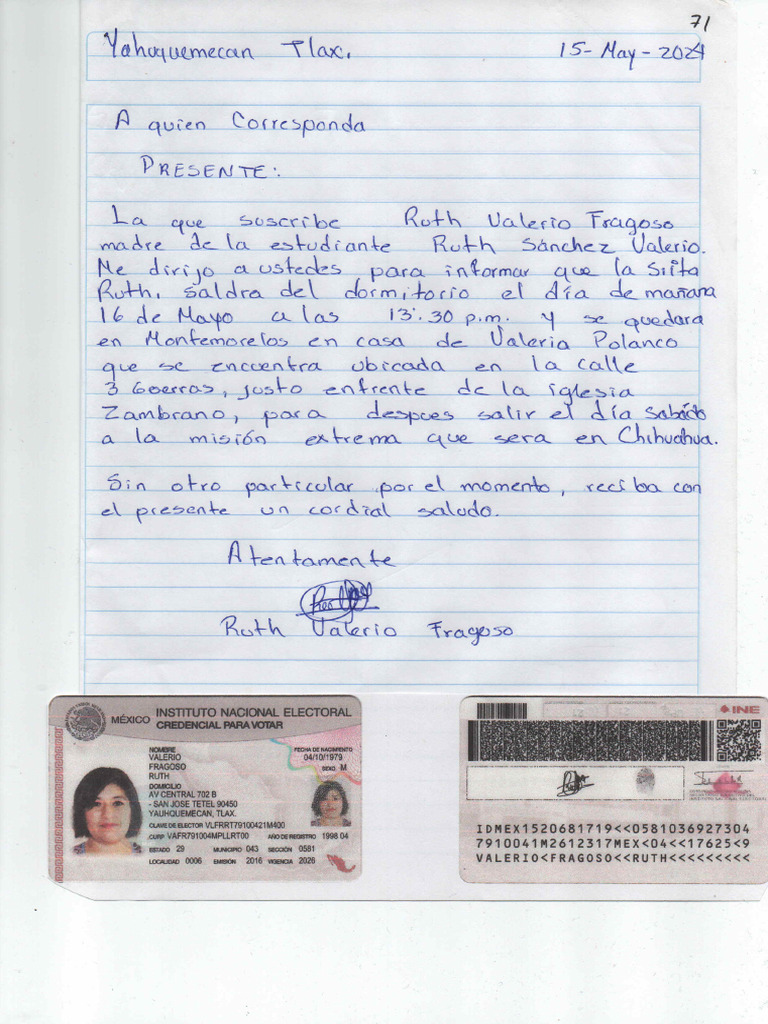 71
Yahuquemecan Tlax. 15-May-2024
A quien Corresponda
PRESENTE:
La que suscribe Ruth Valerio Fragoso
madre de la estudiante Ruth Sánchez Valerio.
Me dirijo a ustedes para informar que la Sriita
Ruth, saldra del dormitorio el día de mañana
16 de Mayo a las 13:30 p.m. y se quedara
en Montemorelos en casa de Valeria Polanco
que se encuentra ubicada en la calle
3 Guerras, justo enfrente de la iglesia
Zambrano, para despues salir el día Sabádo
a la misión extrema que sera en Chihuahua.
Sin otro particular por el momento, reciba con
el presente un cordial saludo.
Atentamente
Ruth Valerio Fragoso
MÉXICO INSTITUTO NACIONAL ELECTORAL
CREDENCIAL PARA VOTAR
NOMBRE
VALERIO
FRAGOSO
RUTH
FECHA DE NACIMIENTO
04/10/1979
SEXO M
DOMICILIO
AV CENTRAL 702 B
- SAN JOSE TETEL 90450
YAUHQUEMECAN, TLAX.
CLAVE DE ELECTOR VLFRRT79100421M400
CURP VAFR791004MPLLRT00 AÑO DE REGISTRO 1998 04
ESTADO 29 MUNICIPIO 043 SECCIÓN 0581
LOCALIDAD 0006 EMISIÓN 2016 VIGENCIA 2026
INE
IDMEX1520681719<<0581036927304
7910041M2612317MEX<04<<17625<9
VALERIO<FRAGOSO<<RUTH<<<<<<<<<